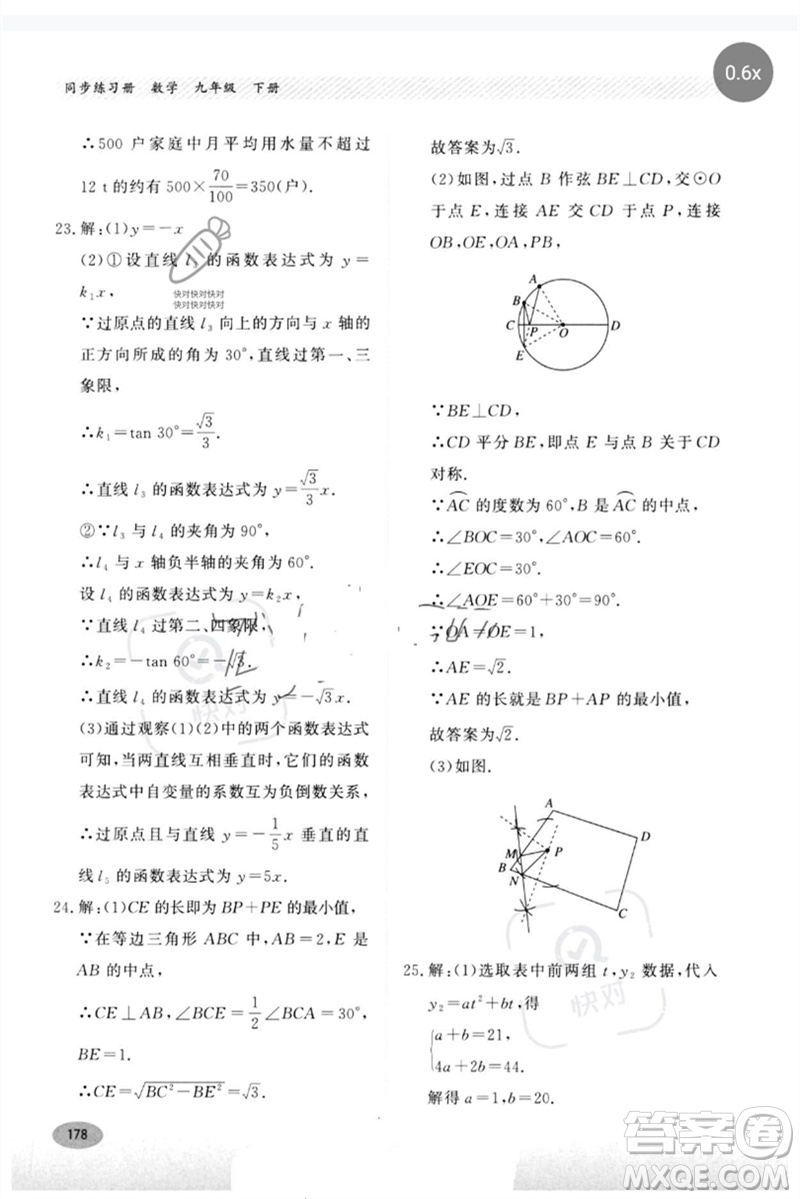 0.6x
同步练习册 数学 九年级 下册
∴500 户家庭中月平均用水量不超过
12 t的约有 500×70/100=350(户).
23.解:(1)y=-x
(2)①设直线 l₃ 的函数表达式为 y=
k₁x,
∵过原点的直线 l₃ 向上的方向与 x 轴的
正方向所成的角为 30°,直线过第一、三
象限,
∴k₁=tan 30°=√3/3.
∴直线 l₃ 的函数表达式为 y=√3/3x.
②∵l₃ 与 l₄ 的夹角为90°,
∴l₄ 与 x 轴负半轴的夹角为 60°.
设 l₄ 的函数表达式为 y=k₂x,
∵l₄ 过第二、四象限,
∴k₂=-tan 60°=-√3.
∴直线 l₄ 的函数表达式为 y=-√3x.
(3)通过观察(1)(2)中的两个函数表达式
可知,当两直线互相垂直时,它们的函数
表达式中自变量的系数互为负倒数关系,
∴过原点且与直线 y=-1/5x 垂直的直
线 l₅ 的函数表达式为 y=5x.
24.解:(1)CE 的长即为 BP+PE 的最小值,
∵在等边三角形 ABC 中,AB=2,E 是
AB 的中点,
∴CE⊥AB,∠BCE=1/2∠BCA=30°,
BE=1.
∴CE=√(BC²-BE²)=√3.
178
故答案为√3.
(2)如图,过点 B 作弦 BE⊥CD,交⊙O
于点 E,连接 AE 交 CD 于点 P,连接
OB,OE,OA,PB,
A
B
C
P
O
D
E
∵BE⊥CD,
∴CD 平分 BE,即点 E 与点 B 关于 CD
对称.
∵⌒AC 的度数为 60°,B 是⌒AC 的中点,
∴∠BOC=30°,∠AOC=60°.
∴∠EOC=30°.
∴∠AOE=60°+30°=90°.
∵OA=OE=1,
∴AE=√2.
∵AE 的长就是 BP+AP 的最小值,
故答案为√2.
(3)如图.
A
D
M
P
B
N
C
25.解:(1)选取表中前两组 t,y₂ 数据,代入
y₂=at²+bt,得
{a+b=21,
4a+2b=44.
解得 a=1,b=20.
快对快对快对
快对快对快对
快对
快对
答案卷
MXQE.COM